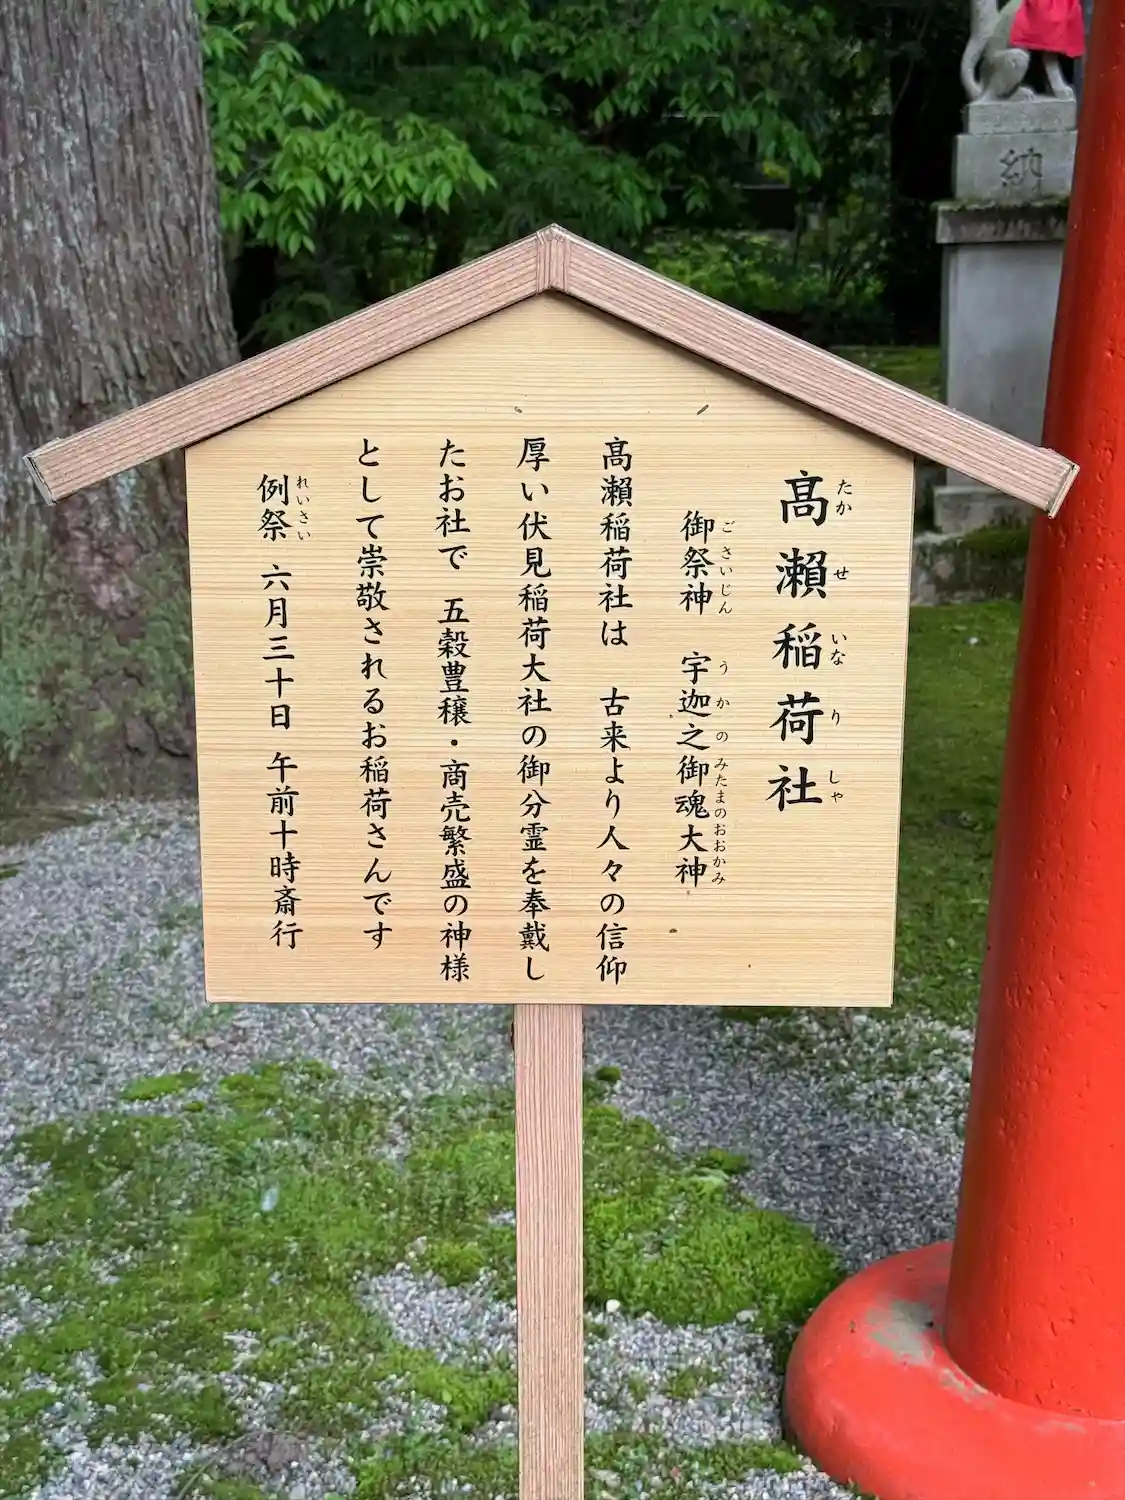 髙瀨稲荷社
たかせいなりしゃ
御祭神 宇迦之御魂大神
ごさいじん うかのみたまのおおかみ
髙瀨稲荷社は 古来より人々の信仰
厚い伏見稲荷大社の御分霊を奉戴し
たお社で 五穀豊穣・商売繁盛の神様
として崇敬されるお稲荷さんです
例祭 六月三十日 午前十時斎行
れいさい
納